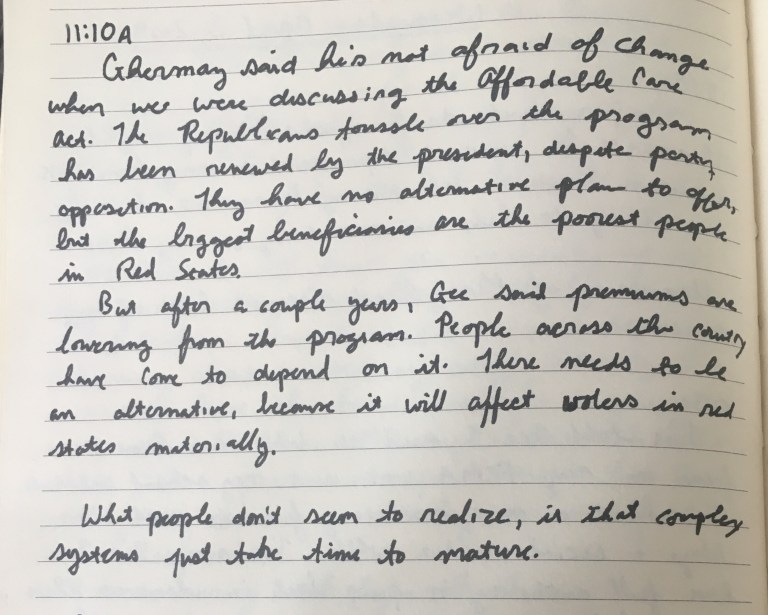 11:10A
Ghermay said he's not afraid of change
when we were discussing the Affordable Care
Act. The Republicans tousle over the program
has been renewed by the president, despite party
opposition. They have no alternative plan to offer,
but the biggest beneficiaries are the poorest people
in Red States.
But after a couple years, Gee said premiums are
lowering from the program. People across the country
have come to depend on it. There needs to be
an alternative, because it will affect voters in red
states materially.
What people don't seem to realize, is that complex
systems just take time to mature.